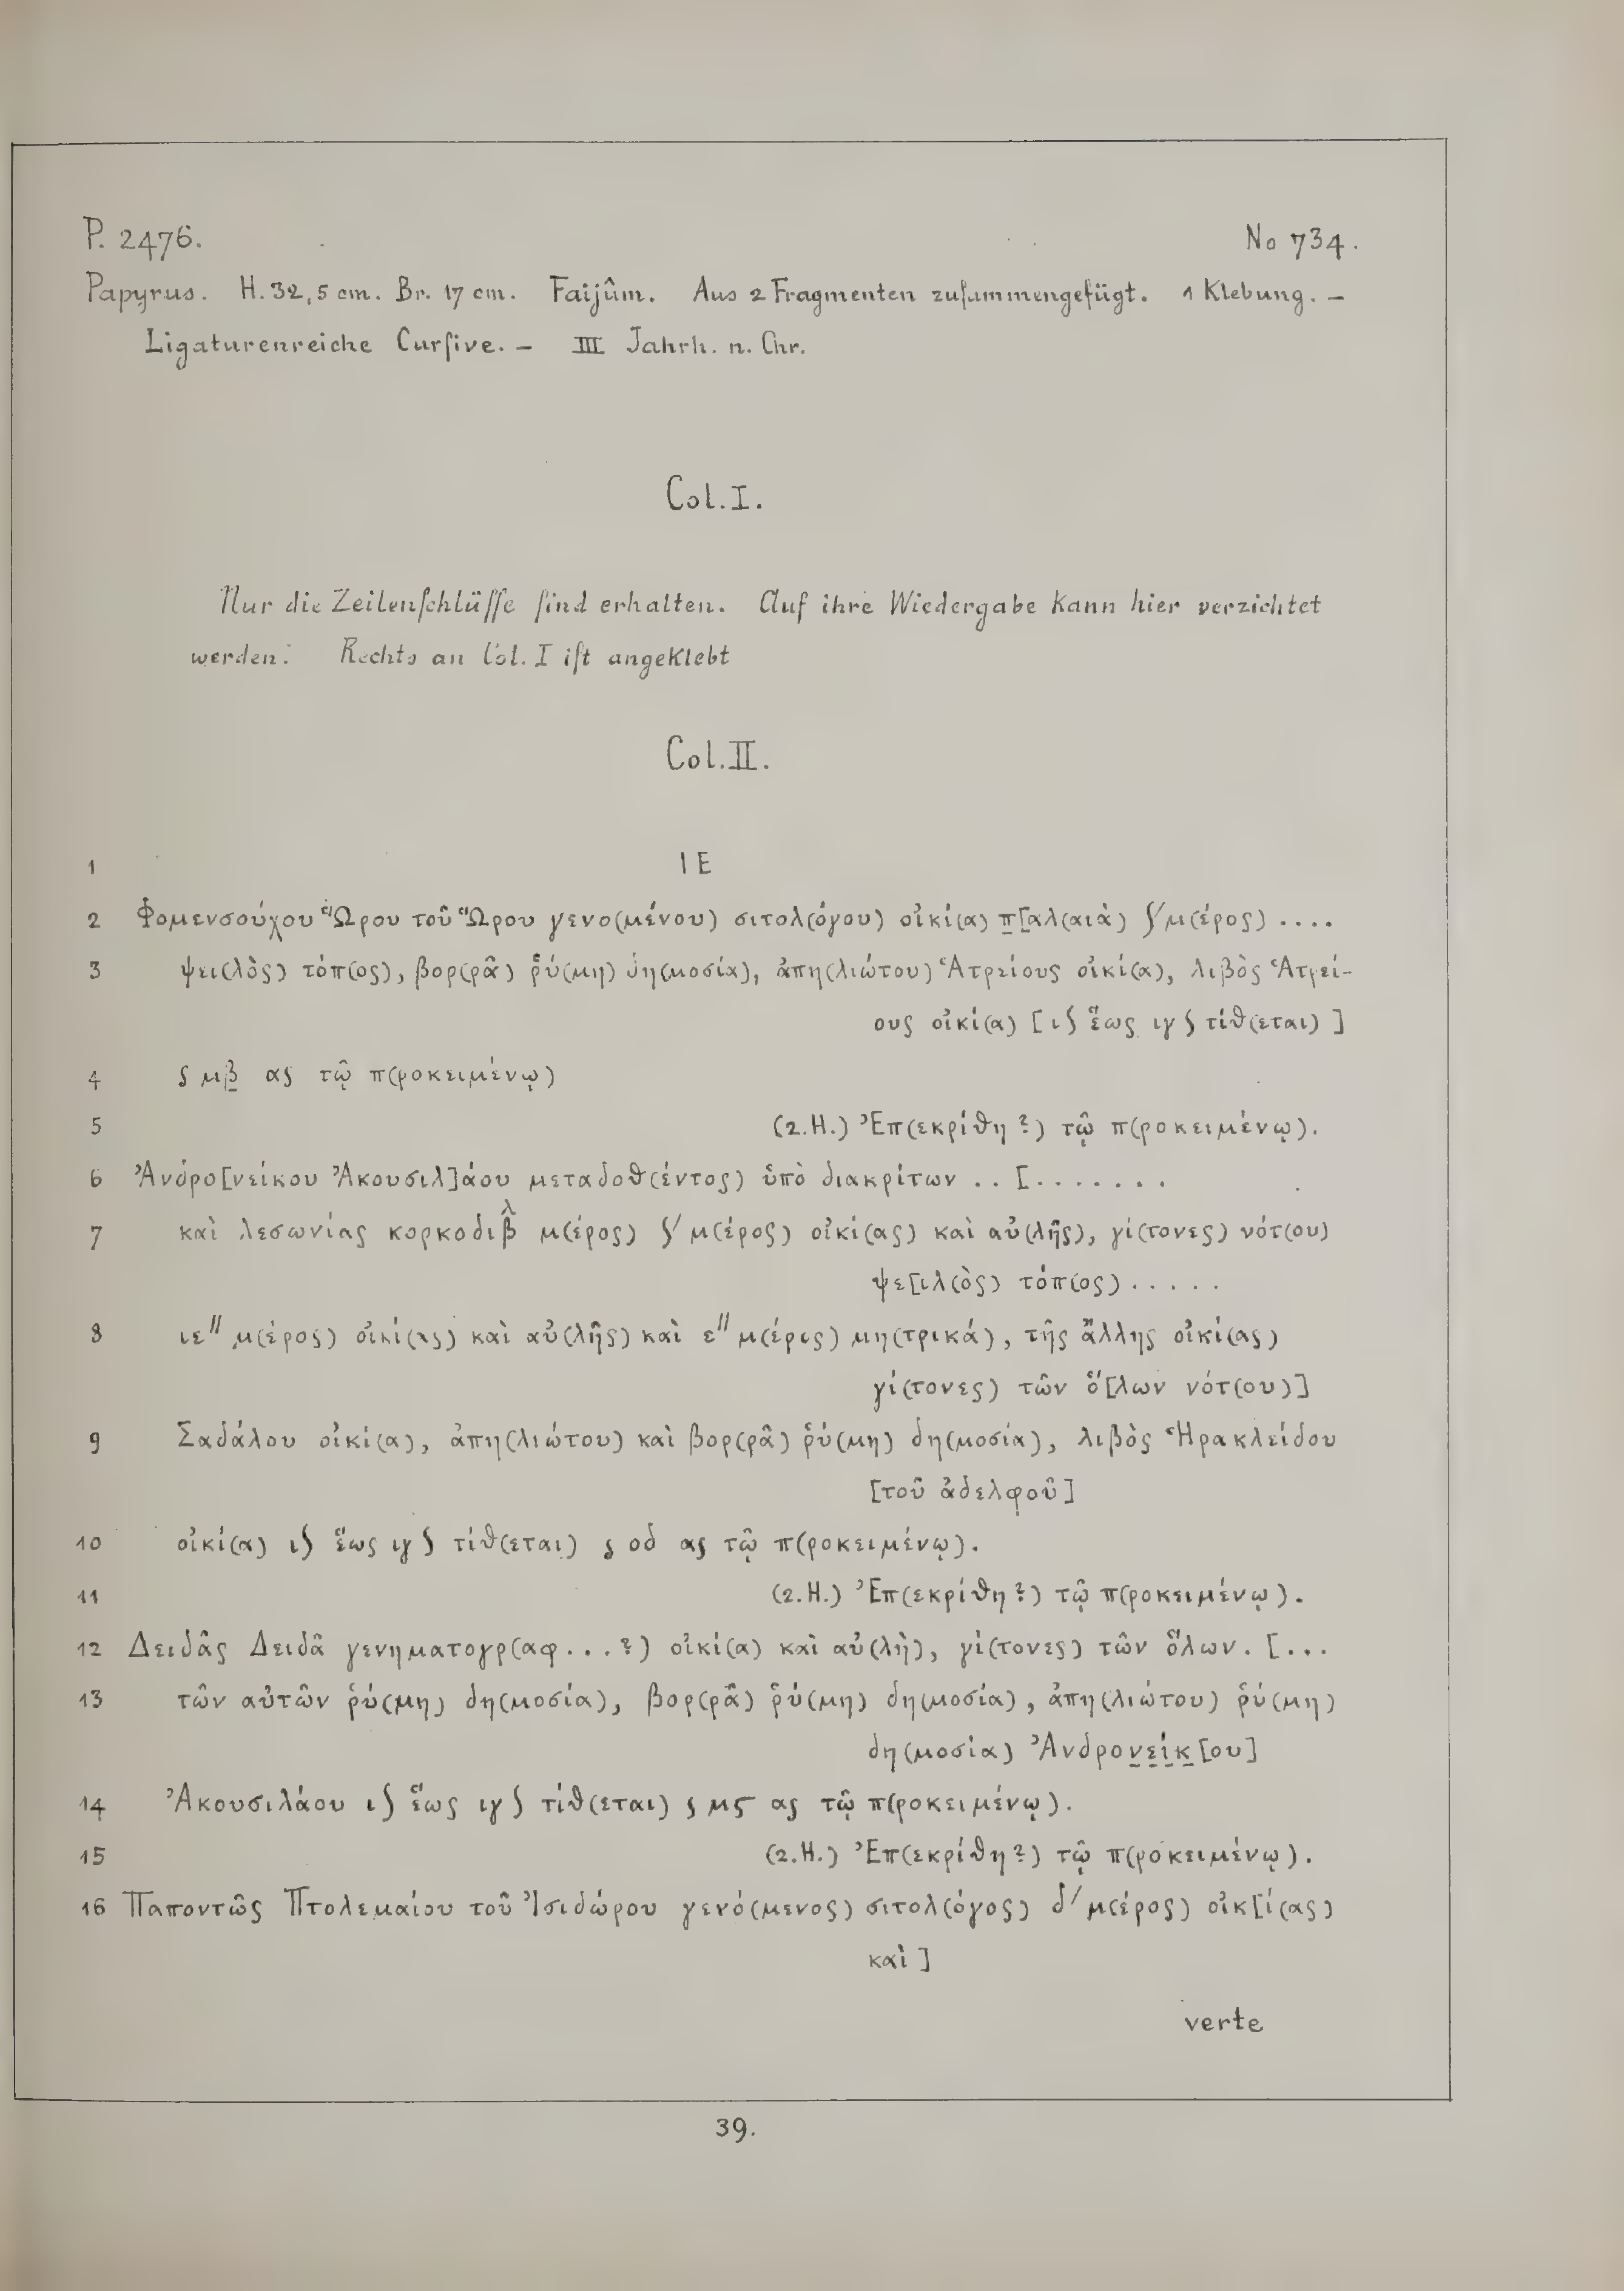 P. 2476. No 734.
Papyrus. H. 32,5 cm. Br. 17 cm. Faijûm. Aus 2 Fragmenten zuſammengefügt. 1 Klebung. –
Ligaturenreiche Curſive. – III Jahrh. n. Chr.
Col. I.
Nur die Zeilenſchlüſſe ſind erhalten. Auf ihre Wiedergabe kann hier verzichtet
werden. Rechts an Col. I iſt angeklebt
Col. II.
1 ΙΕ
2 Φομενσούχου Ὥρου τοῦ Ὥρου γενο(μένου) σιτολ(όγου) οἰκί(α) π̣[αλ(αιὰ) ϛ′ μ(έρος) ....
3 ψει(λὸς) τόπ(ος), βορ(ρᾶ) ῥύ(μη) δη(μοσία), ἀπη(λιώτου) Ἁτρείους οἰκί(α), λιβὸς Ἁτρεί-
ους οἰκί(α) [ιϛ ἕως ιγϛ τίθ(εται)]
4 ϛ μβ̣ ας τῷ π(ροκειμένῳ)
5 (2.H.) Ἐπ(εκρίθη?) τῷ π(ροκειμένῳ).
6 Ἀνδρο[νείκου Ἀκουσιλ]άου μεταδοθ(έντος) ὑπὸ διακρίτων .. [.......
7 καὶ λεσωνίας κορκοδιβ̓λ μ(έρος) ϛ′ μ(έρος) οἰκί(ας) καὶ αὐ(λῆς), γί(τονες) νότ(ου)
ψε[ιλ(ὸς) τόπ(ος) .....
8 ιε″ μ(έρος) οἰκί(ας) καὶ αὐ(λῆς) καὶ ε″ μ(έρος) μη(τρικά), τῆς ἄλλης οἰκί(ας)
γί(τονες) τῶν ὅ[λων νότ(ου)]
9 Σαδάλου οἰκί(α), ἀπη(λιώτου) καὶ βορ(ρᾶ) ῥύ(μη) δη(μοσία), λιβὸς Ἡρακλείδου
[τοῦ ἀδελφοῦ]
10 οἰκί(α) ιϛ ἕως ιγϛ τίθ(εται) ϛ οδ ας τῷ π(ροκειμένῳ).
11 (2.H.) Ἐπ(εκρίθη?) τῷ π(ροκειμένῳ).
12 Δειδᾶς Δειδᾶ γενηματογρ(αφ...?) οἰκί(α) καὶ αὐ(λὴ), γί(τονες) τῶν ὅλων. [...
13 τῶν αὐτῶν ῥύ(μη) δη(μοσία), βορ(ρᾶ) ῥύ(μη) δη(μοσία), ἀπη(λιώτου) ῥύ(μη)
δη(μοσία) Ἀνδρον̣ε̣ί̣κ̣[ου]
14 Ἀκουσιλάου ιϛ ἕως ιγϛ τίθ(εται) ϛ μϛ ας τῷ π(ροκειμένῳ).
15 (2.H.) Ἐπ(εκρίθη?) τῷ π(ροκειμένῳ).
16 Παποντῶς Πτολεμαίου τοῦ Ἰσιδώρου γενό(μενος) σιτολ(όγος) δ′ μ(έρος) οἰκ[ί(ας)
καὶ]
verte
39.